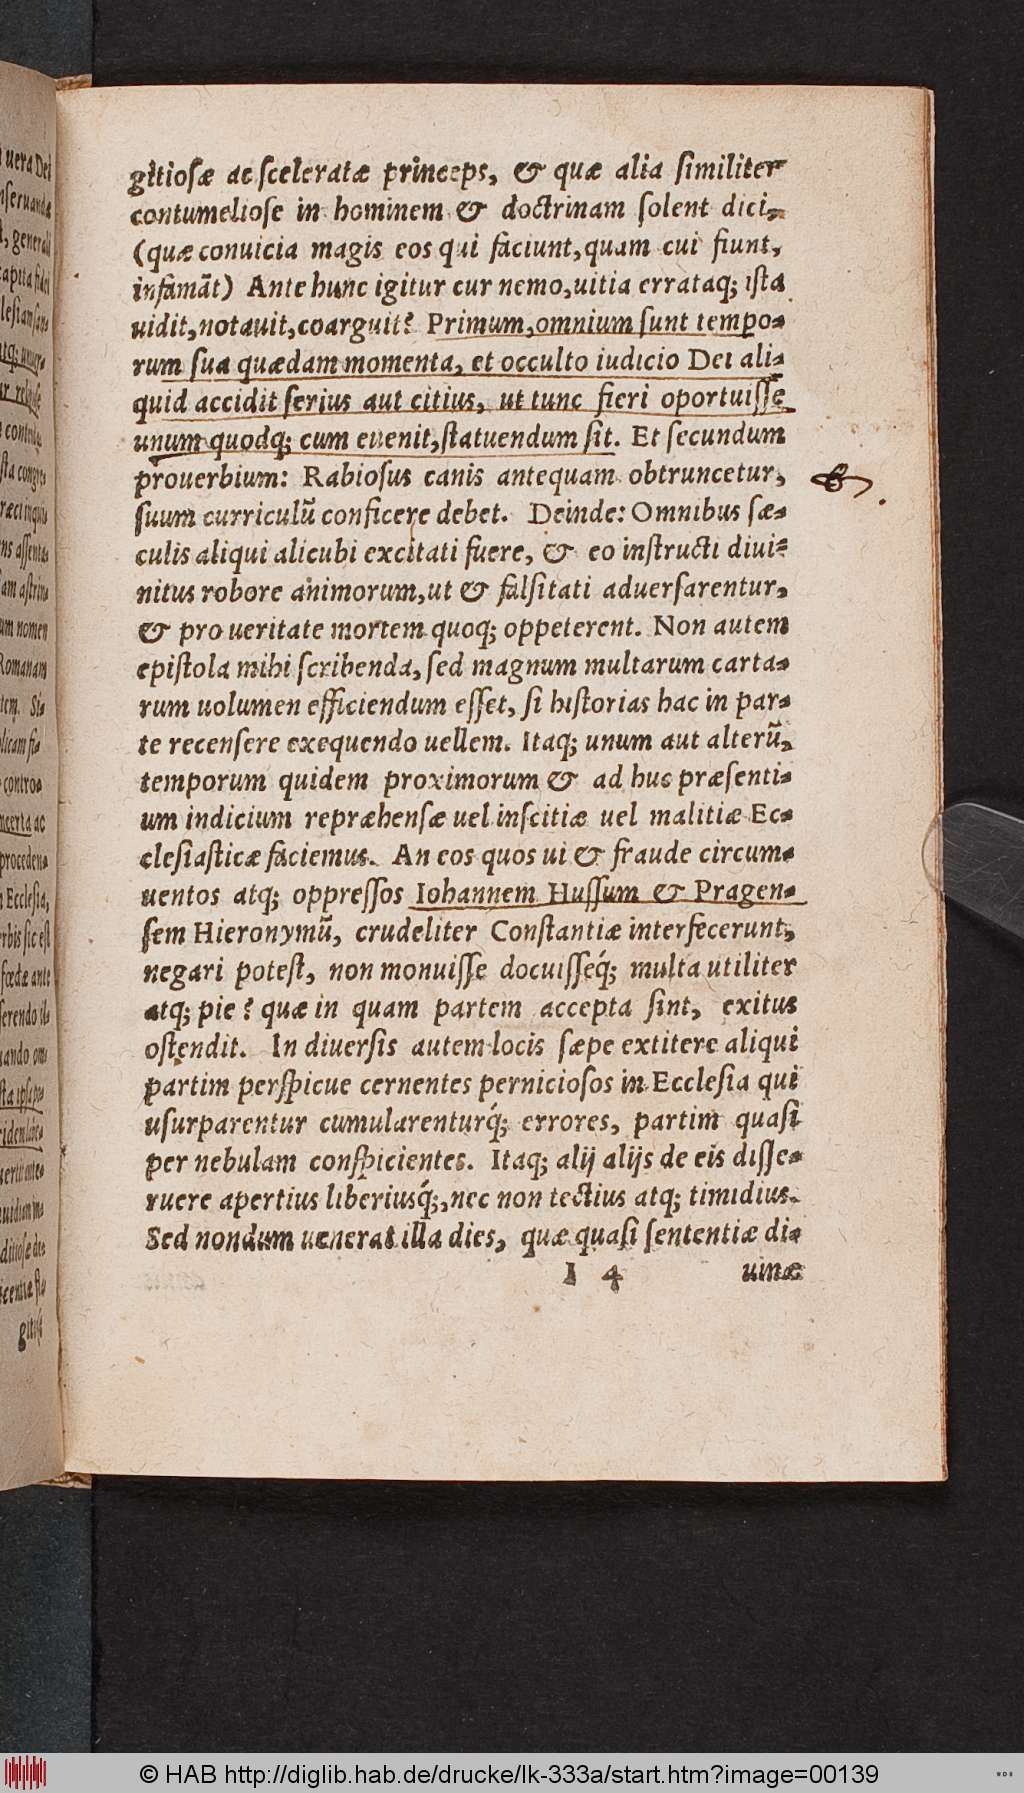 gitiosæ ac sceleratæ princeps, & quæ alia similiter
contumeliose in hominem & doctrinam solent dici,
(quæ conuicia magis eos qui faciunt, quam cui fiunt,
infamāt) Ante hunc igitur cur nemo, uitia errataq; ista
uidit, notauit, coarguit? Primum, omnium sunt tempo-
rum sua quædam momenta, et occulto iudicio Dei ali-
quid accidit serius aut citius, ut tunc fieri oportuisse
unum quodq; cum euenit, statuendum sit. Et secundum
prouerbium: Rabiosus canis antequam obtruncetur,
suum curriculū conficere debet. Deinde: Omnibus sæ-
culis aliqui alicubi excitati fuere, & eo instructi diui-
nitus robore animorum, ut & falsitati aduersarentur,
& pro ueritate mortem quoq; oppeterent. Non autem
epistola mihi scribenda, sed magnum multarum carta-
rum uolumen efficiendum esset, si historias hac in par-
te recensere exequendo uellem. Itaq; unum aut alterū,
temporum quidem proximorum & ad huc præsenti-
um indicium repræhensæ uel inscitiæ uel malitiæ Ec-
clesiasticæ faciemus. An eos quos ui & fraude circum-
uentos atq; oppressos Iohannem Hussum & Pragen-
sem Hieronymū, crudeliter Constantiæ interfecerunt,
negari potest, non monuisse docuisseq́; multa utiliter
atq; pie? quæ in quam partem accepta sint, exitus
ostendit. In diuersis autem locis sæpe extitere aliqui
partim perspicue cernentes perniciosos in Ecclesia qui
usurparentur cumularenturq́; errores, partim quasi
per nebulam conspicientes. Itaq; alij alijs de eis disse-
ruere apertius liberiusq́;, nec non tectius atq; timidius.
Sed nondum uenerat illa dies, quæ quasi sententiæ di-
I 4 uinæ
uera Dei
generali
capita fidei
nomen
Romanam
contro-
incerta ac
proceden-
Ecclesia,
fœdæ ante
© HAB http://diglib.hab.de/drucke/lk-333a/start.htm?image=00139